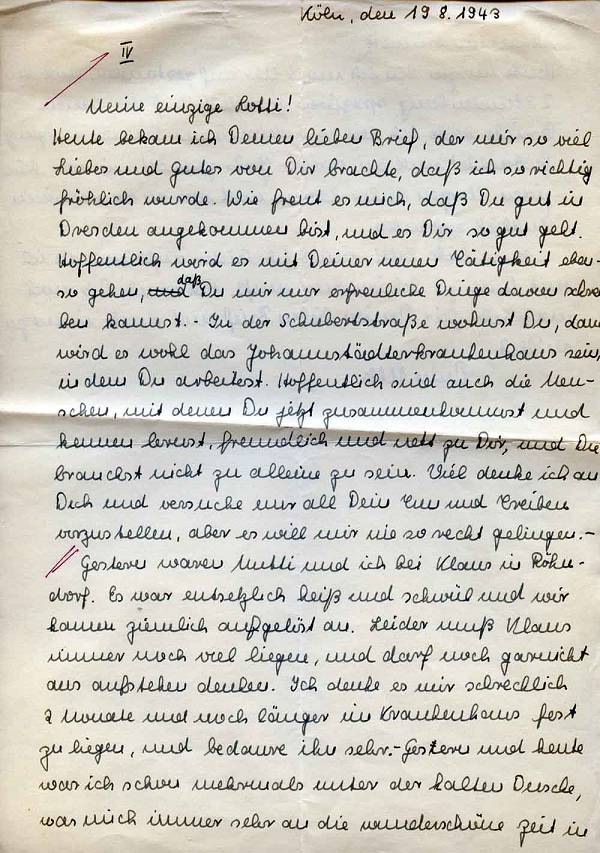 Köln, den 19 8. 1943
IV
Meine einzige Lotti!
Heute bekam ich Deinen lieben Brief, der mir so viel
Liebes und gutes von Dir brachte, daß ich so richtig
fröhlich wurde. Wie freut es mich, daß Du gut in
Dresden angekommen bist, und es Dir so gut geht.
Hoffentlich wird es mit Deiner neuen Tätigkeit eben-
so gehen, und daß Du mir nur erfreuliche Dinge davon schrei
ben kannst. - In der Schubertstraße wohnst Du, dann
wird es wohl das Johannstädterkrankenhaus sein,
in dem Du arbeitest. Hoffentlich sind auch die Men-
schen, mit denen Du jetzt zusammenkommst und
kennen lernst, freundlich und nett zu Dir, und Du
brauchst nicht zu alleine zu sein. Viel denke ich an
Dich und versuche mir all Dein Tun und Treiben
vorzustellen, aber es will mir nie so recht gelingen. -
Gestern waren Mutti und ich bei Klaus in Röhn-
dorf. Es war entsetzlich heiß und schwül und wir
kamen ziemlich aufgelöst an. Leider muß Klaus
immer noch viel liegen, und darf noch garnicht
ans aufstehen denken. Ich denke es mir schrecklich
2 Monate und noch länger im Krankenhaus fest
zu liegen, und bedaure ihn sehr. - Gestern und heute
war ich schon mehrmals unter der kalten Dusche,
was mich immer sehr an die wunderschöne Zeit in